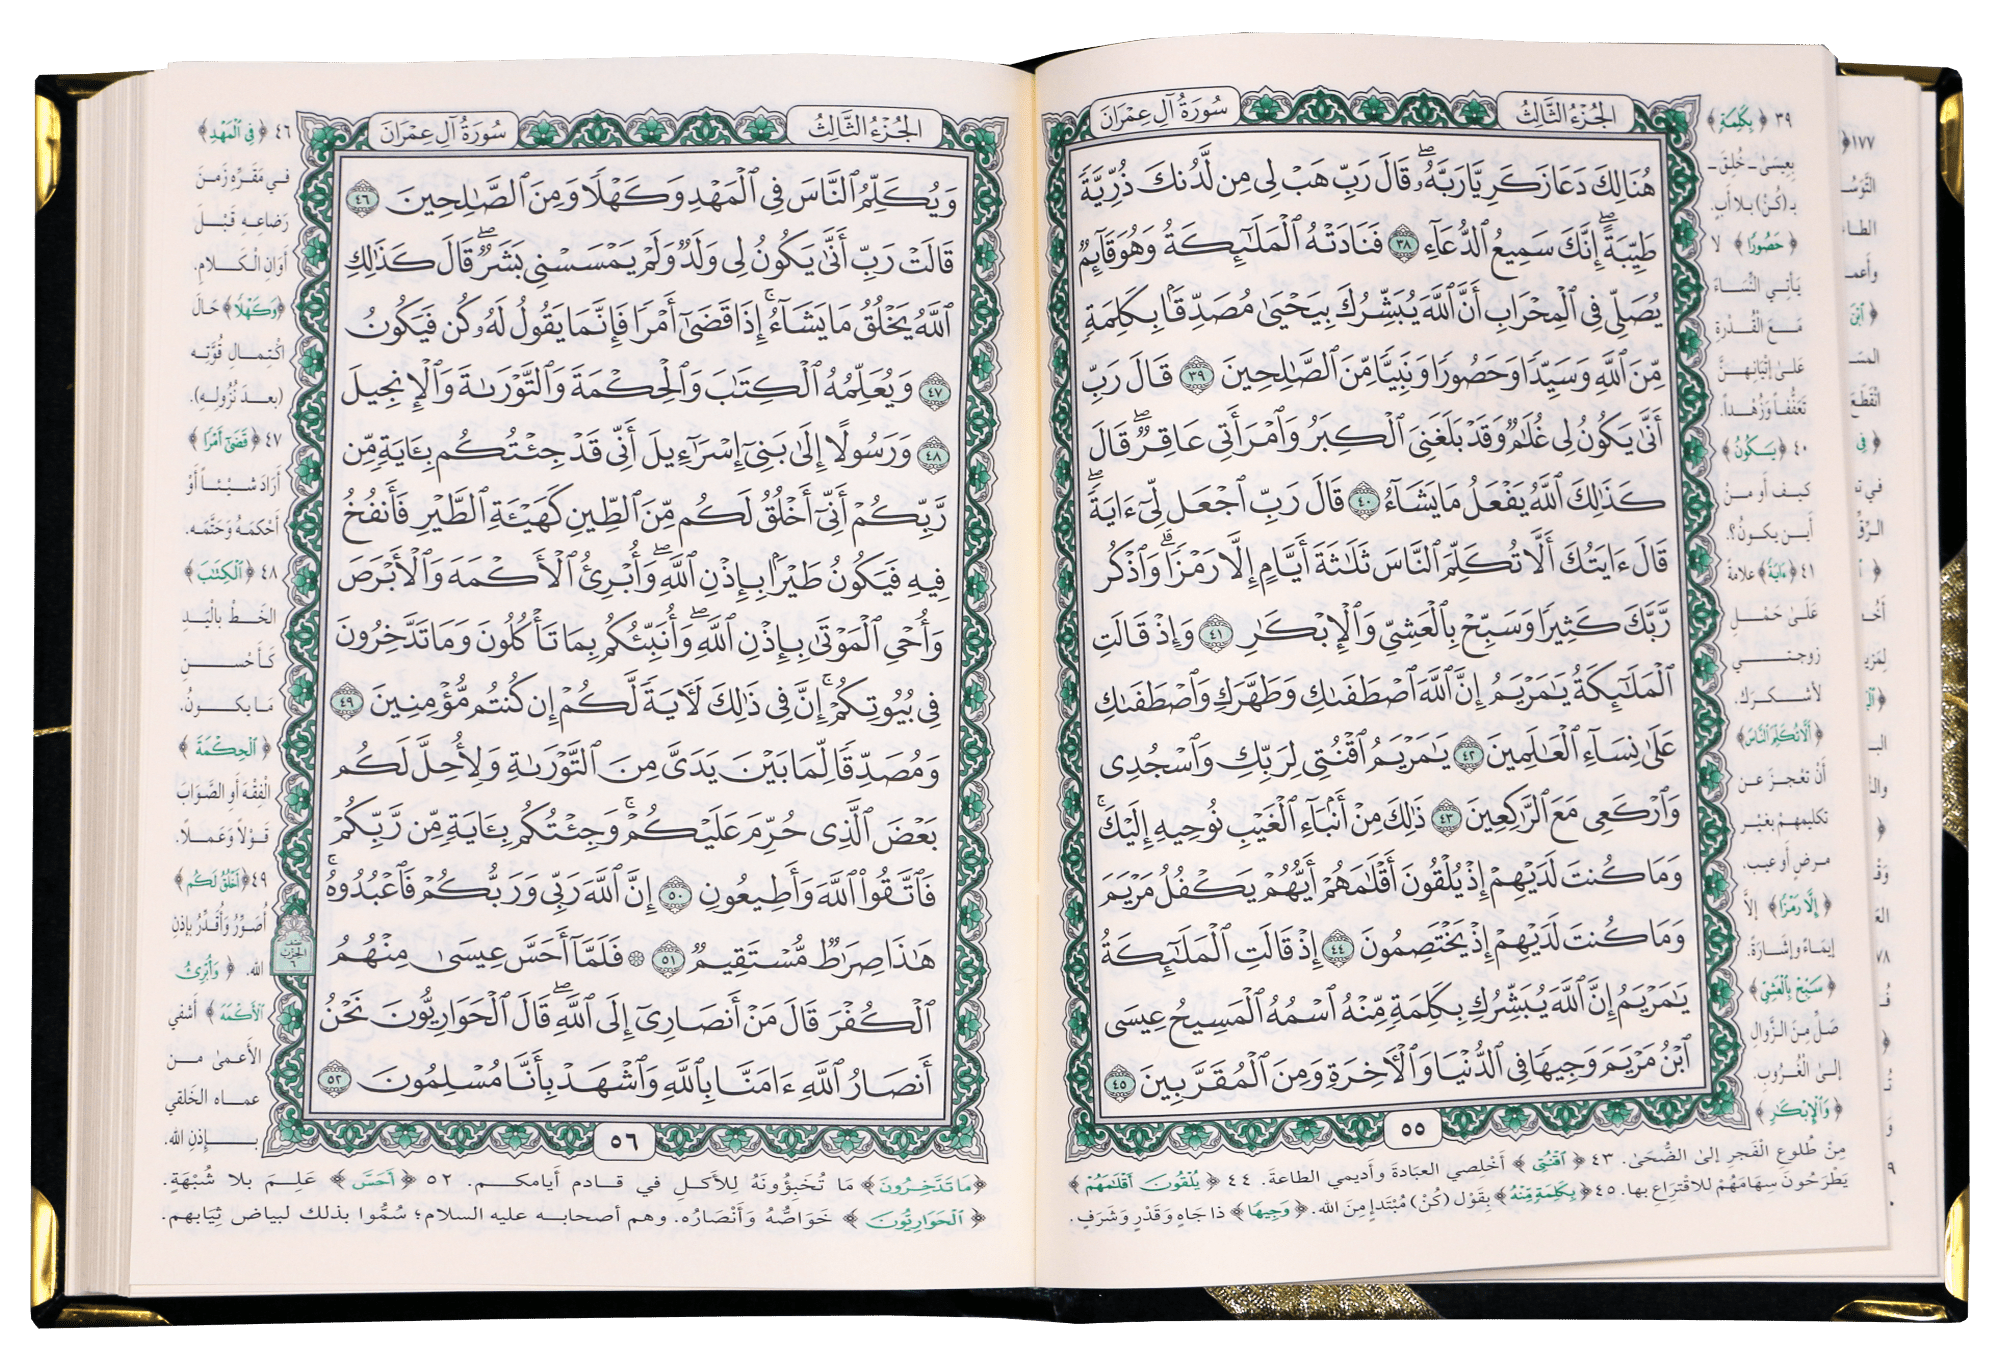 الجُزْءُ الثَّالِثُ
سُورَةُ آلِ عِمْرَانَ
هُنَالِكَ دَعَا زَكَرِيَّا رَبَّهُۥۖ قَالَ رَبِّ هَبْ لِى مِن لَّدُنكَ ذُرِّيَّةً
طَيِّبَةًۖ إِنَّكَ سَمِيعُ ٱلدُّعَآءِ ٣٨ فَنَادَتْهُ ٱلْمَلَٰٓئِكَةُ وَهُوَ قَآئِمٌ
يُصَلِّى فِى ٱلْمِحْرَابِ أَنَّ ٱللَّهَ يُبَشِّرُكَ بِيَحْيَىٰ مُصَدِّقًۢا بِكَلِمَةٍ
مِّنَ ٱللَّهِ وَسَيِّدًا وَحَصُورًا وَنَبِيًّا مِّنَ ٱلصَّٰلِحِينَ ٣٩ قَالَ رَبِّ
أَنَّىٰ يَكُونُ لِى غُلَٰمٌ وَقَدْ بَلَغَنِىَ ٱلْكِبَرُ وَٱمْرَأَتِى عَاقِرٌۖ قَالَ
كَذَٰلِكَ ٱللَّهُ يَفْعَلُ مَا يَشَآءُ ٤٠ قَالَ رَبِّ ٱجْعَل لِّىٓ ءَايَةًۖ
قَالَ ءَايَتُكَ أَلَّا تُكَلِّمَ ٱلنَّاسَ ثَلَٰثَةَ أَيَّامٍ إِلَّا رَمْزًاۗ وَٱذْكُر
رَّبَّكَ كَثِيرًا وَسَبِّحْ بِٱلْعَشِىِّ وَٱلْإِبْكَٰرِ ٤١ وَإِذْ قَالَتِ
ٱلْمَلَٰٓئِكَةُ يَٰمَرْيَمُ إِنَّ ٱللَّهَ ٱصْطَفَىٰكِ وَطَهَّرَكِ وَٱصْطَفَىٰكِ
عَلَىٰ نِسَآءِ ٱلْعَٰلَمِينَ ٤٢ يَٰمَرْيَمُ ٱقْنُتِى لِرَبِّكِ وَٱسْجُدِى
وَٱرْكَعِى مَعَ ٱلرَّٰكِعِينَ ٤٣ ذَٰلِكَ مِنْ أَنۢبَآءِ ٱلْغَيْبِ نُوحِيهِ إِلَيْكَۚ
وَمَا كُنتَ لَدَيْهِمْ إِذْ يُلْقُونَ أَقْلَٰمَهُمْ أَيُّهُمْ يَكْفُلُ مَرْيَمَ
وَمَا كُنتَ لَدَيْهِمْ إِذْ يَخْتَصِمُونَ ٤٤ إِذْ قَالَتِ ٱلْمَلَٰٓئِكَةُ
يَٰمَرْيَمُ إِنَّ ٱللَّهَ يُبَشِّرُكِ بِكَلِمَةٍ مِّنْهُ ٱسْمُهُ ٱلْمَسِيحُ عِيسَى
ٱبْنُ مَرْيَمَ وَجِيهًا فِى ٱلدُّنْيَا وَٱلْءَاخِرَةِ وَمِنَ ٱلْمُقَرَّبِينَ ٤٥
٥٥
٣٩ ﴿بِكَلِمَةٍ﴾
بِعِيسَىٰ ـ خُلِقَ ـ
بـ (كُنْ) بلا أبٍ.
﴿حَصُورًا﴾ لا
يَأتي النِّسَاءَ
مَعَ الْقُدْرةِ
عَلىٰ إتْيَانِهِنَّ
تَعَفُّفاً وَزُهْداً.
٤٠ ﴿يَكُونُ﴾
كيف أو منْ
أين يكونُ؟.
٤١ ﴿ءَايَةً﴾ علامةً
عَلَىٰ حَمْلِ
زوجتي
لأشكرَك.
﴿أَلَّا تُكَلِّمَ النَّاسَ﴾
أنْ تعْجزَ عن
تكليمهمْ بغَيْر
مرضٍ أو عيب.
﴿إِلَّا رَمْزًا﴾ إلاَّ
إيمَاءً وإشَارَةً.
﴿سَبِّحْ بِالْعَشِيِّ﴾
صَلِّ مِنَ الزَّوالِ
إلىٰ الْغُرُوبِ.
﴿وَالْإِبْكَٰرِ﴾
مِنْ طُلوعِ الْفَجرِ إلىٰ الضُّحَىٰ. ٤٣ ﴿اقْنُتِي﴾ أَخْلِصي العبَادةَ وأَديمي الطاعةَ. ٤٤ ﴿يُلْقُونَ أَقْلَٰمَهُمْ﴾
يَطْرَحُونَ سِهَامَهُمْ للاقْتِرَاعِ بها. ٤٥ ﴿بِكَلِمَةٍ مِّنْهُ﴾ بِقَوْل (كُنْ) مُبْتَدإٍ مِنَ الله. ﴿وَجِيهًا﴾ ذا جَاهٍ وَقَدْرٍ وَشَرَفٍ.
الجُزْءُ الثَّالِثُ
سُورَةُ آلِ عِمْرَانَ
وَيُكَلِّمُ ٱلنَّاسَ فِى ٱلْمَهْدِ وَكَهْلًا وَمِنَ ٱلصَّٰلِحِينَ ٤٦
قَالَتْ رَبِّ أَنَّىٰ يَكُونُ لِى وَلَدٌ وَلَمْ يَمْسَسْنِى بَشَرٌۖ قَالَ كَذَٰلِكِ
ٱللَّهُ يَخْلُقُ مَا يَشَآءُۚ إِذَا قَضَىٰٓ أَمْرًا فَإِنَّمَا يَقُولُ لَهُۥ كُن فَيَكُونُ
٤٧ وَيُعَلِّمُهُ ٱلْكِتَٰبَ وَٱلْحِكْمَةَ وَٱلتَّوْرَىٰةَ وَٱلْإِنجِيلَ
٤٨ وَرَسُولًا إِلَىٰ بَنِىٓ إِسْرَٰٓءِيلَ أَنِّى قَدْ جِئْتُكُم بِـَٔايَةٍ مِّن
رَّبِّكُمْ أَنِّىٓ أَخْلُقُ لَكُم مِّنَ ٱلطِّينِ كَهَيْـَٔةِ ٱلطَّيْرِ فَأَنفُخُ
فِيهِ فَيَكُونُ طَيْرًۢا بِإِذْنِ ٱللَّهِۖ وَأُبْرِئُ ٱلْأَكْمَهَ وَٱلْأَبْرَصَ
وَأُحْىِ ٱلْمَوْتَىٰ بِإِذْنِ ٱللَّهِۖ وَأُنَبِّئُكُم بِمَا تَأْكُلُونَ وَمَا تَدَّخِرُونَ
فِى بُيُوتِكُمْۚ إِنَّ فِى ذَٰلِكَ لَءَايَةً لَّكُمْ إِن كُنتُم مُّؤْمِنِينَ ٤٩
وَمُصَدِّقًا لِّمَا بَيْنَ يَدَىَّ مِنَ ٱلتَّوْرَىٰةِ وَلِأُحِلَّ لَكُم
بَعْضَ ٱلَّذِى حُرِّمَ عَلَيْكُمْۚ وَجِئْتُكُم بِـَٔايَةٍ مِّن رَّبِّكُمْ
فَٱتَّقُوا۟ ٱللَّهَ وَأَطِيعُونِ ٥٠ إِنَّ ٱللَّهَ رَبِّى وَرَبُّكُمْ فَٱعْبُدُوهُۚ
هَٰذَا صِرَٰطٌ مُّسْتَقِيمٌ ٥١ ۞ فَلَمَّآ أَحَسَّ عِيسَىٰ مِنْهُمُ
ٱلْكُفْرَ قَالَ مَنْ أَنصَارِىٓ إِلَى ٱللَّهِۖ قَالَ ٱلْحَوَارِيُّونَ نَحْنُ
أَنصَارُ ٱللَّهِ ءَامَنَّا بِٱللَّهِ وَٱشْهَدْ بِأَنَّا مُسْلِمُونَ ٥٢
٥٦
نصف
الحزب
٦
٤٦ ﴿فِي الْمَهْدِ﴾
في مَقَرِّهِ زَمنَ
رَضاعِهِ قَبْلَ
أوَانِ الْكَلامِ.
﴿وَكَهْلًا﴾ حَالَ
اكْتِمالِ قُوَّتِهِ
(بعدَ نُزُولِهِ).
٤٧ ﴿قَضَىٰٓ أَمْرًا﴾
أرَادَ شيْئاً أوْ
أحْكمَهُ وَحَتَّمَه.
٤٨ ﴿الْكِتَٰبَ﴾
الخَطَّ بالْيَدِ
كَأحْسنِ
مَا يكونُ.
﴿الْحِكْمَةَ﴾
الْفِقْهَ أوِ الصَّوَابَ
قَوْلاً وَعَملاً.
٤٩ ﴿أَخْلُقُ لَكُم﴾
أُصَوِّرُ وَأُقَدِّرُ بإذنِ
الله. ﴿وَأُبْرِئُ
الْأَكْمَهَ﴾ أَشفي
الأعمىٰ من
عماه الخَلقي
بإذنِ الله.
﴿مَا تَدَّخِرُونَ﴾ مَا تُخَبؤُونَهُ لِلأكلِ في قادم أيامكم. ٥٢ ﴿أَحَسَّ﴾ عَلِمَ بلا شُبْهَةٍ.
﴿الْحَوَارِيُّونَ﴾ خَوَاصُّهُ وَأَنْصَارُه. وهم أصحابه عليه السلام؛ سُمُّوا بذلك لبياض ثِيَابهم.